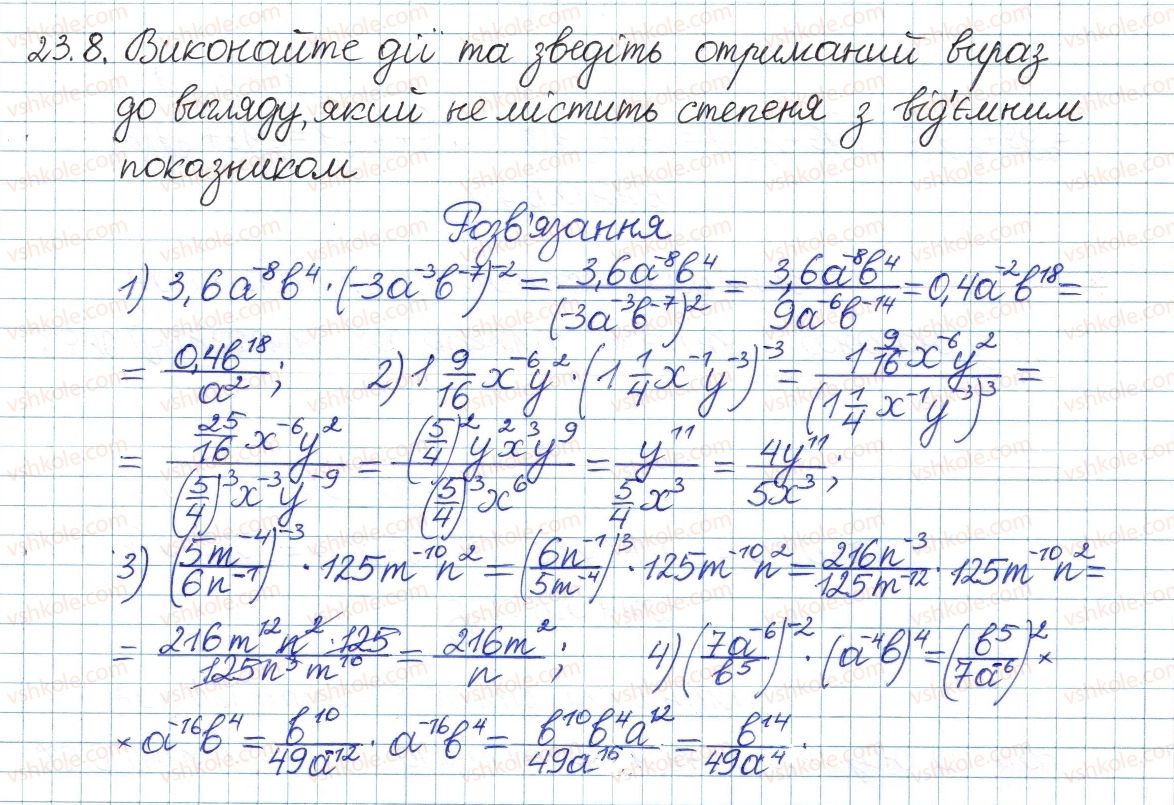 23.8. Виконайте дії та зведіть отриманий вираз
до вигляду, який не містить степеня з від'ємним
показником
Розв'язання
1) 3,6a⁻⁸b⁴ · (-3a⁻³b⁻⁷)⁻² = 3,6a⁻⁸b⁴/(-3a⁻³b⁻⁷)² = 3,6a⁻⁸b⁴/9a⁻⁶b⁻¹⁴ = 0,4a⁻²b¹⁸ =
= 0,4b¹⁸/a²; 2) 1 9/16 x⁻⁶y² · (1 1/4 x⁻¹y⁻³)⁻³ = 1 9/16 x⁻⁶y²/(1 1/4 x⁻¹y⁻³)³ =
= 25/16 x⁻⁶y²/(5/4)³x⁻³y⁻⁹ = (5/4)²y²x³y⁹/(5/4)³x⁶ = y¹¹/(5/4 x³) = 4y¹¹/5x³;
3) (5m⁻⁴/6n⁻¹)⁻³ · 125m⁻¹⁰n² = (6n⁻¹/5m⁻⁴)³ · 125m⁻¹⁰n² = 216n⁻³/125m⁻¹² · 125m⁻¹⁰n² =
= 216m¹²n² · 125/125n³m¹⁰ = 216m²/n; 4) (7a⁻⁶/b⁵)⁻² · (a⁻⁴b)⁴ = (b⁵/7a⁻⁶)² ×
× a⁻¹⁶b⁴ = b¹⁰/49a⁻¹² · a⁻¹⁶b⁴ = b¹⁰b⁴a¹²/49a¹⁶ = b¹⁴/49a⁴.